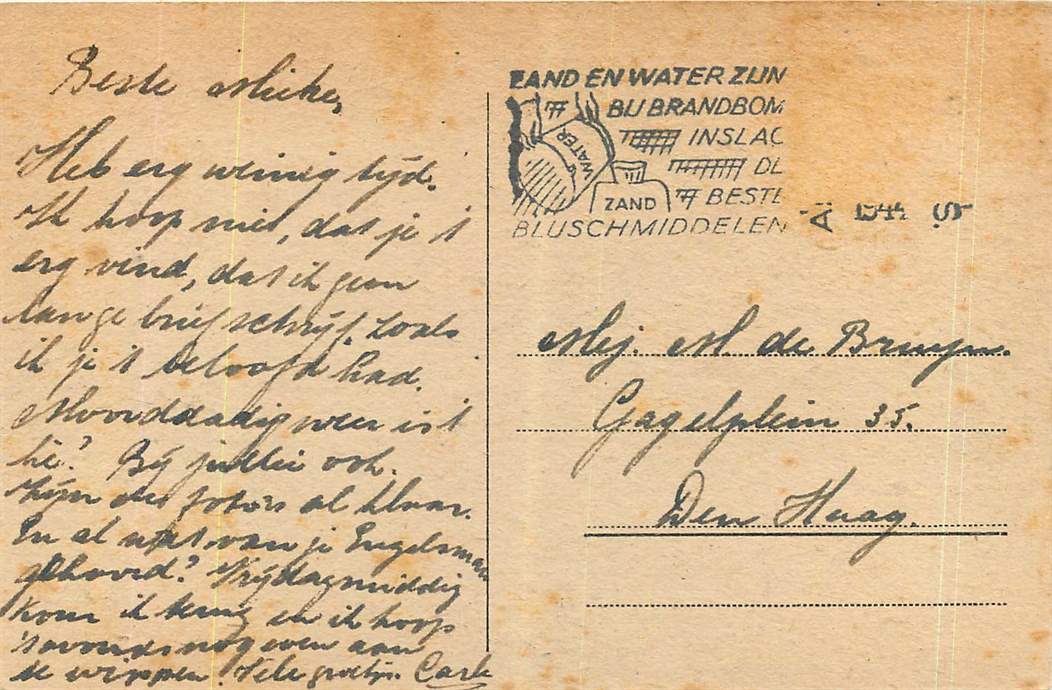 Beste Mieke,
Heb erg weinig tijd.
Ik hoop niet, dat je 't
erg vind, dat ik geen
lange brief schrijf, zoals
ik je 't beloofd had.
Moorddadig weer is 't
hè? Bij jullie ook.
Zijn de foto's al klaar.
En al wat van je Engelsman
gehoord? Vrijdagmiddig
kom ik terug en ik hoop
's avonds nog even aan
te wippen. Vele groetjes. Carla
ZAND EN WATER ZIJN
BIJ BRANDBOM
INSLAG
DE
BESTE
BLUSCHMIDDELEN
WATER
ZAND
1944
Mej. M. de Bruijn.
Gagelplein 35.
Den Haag.